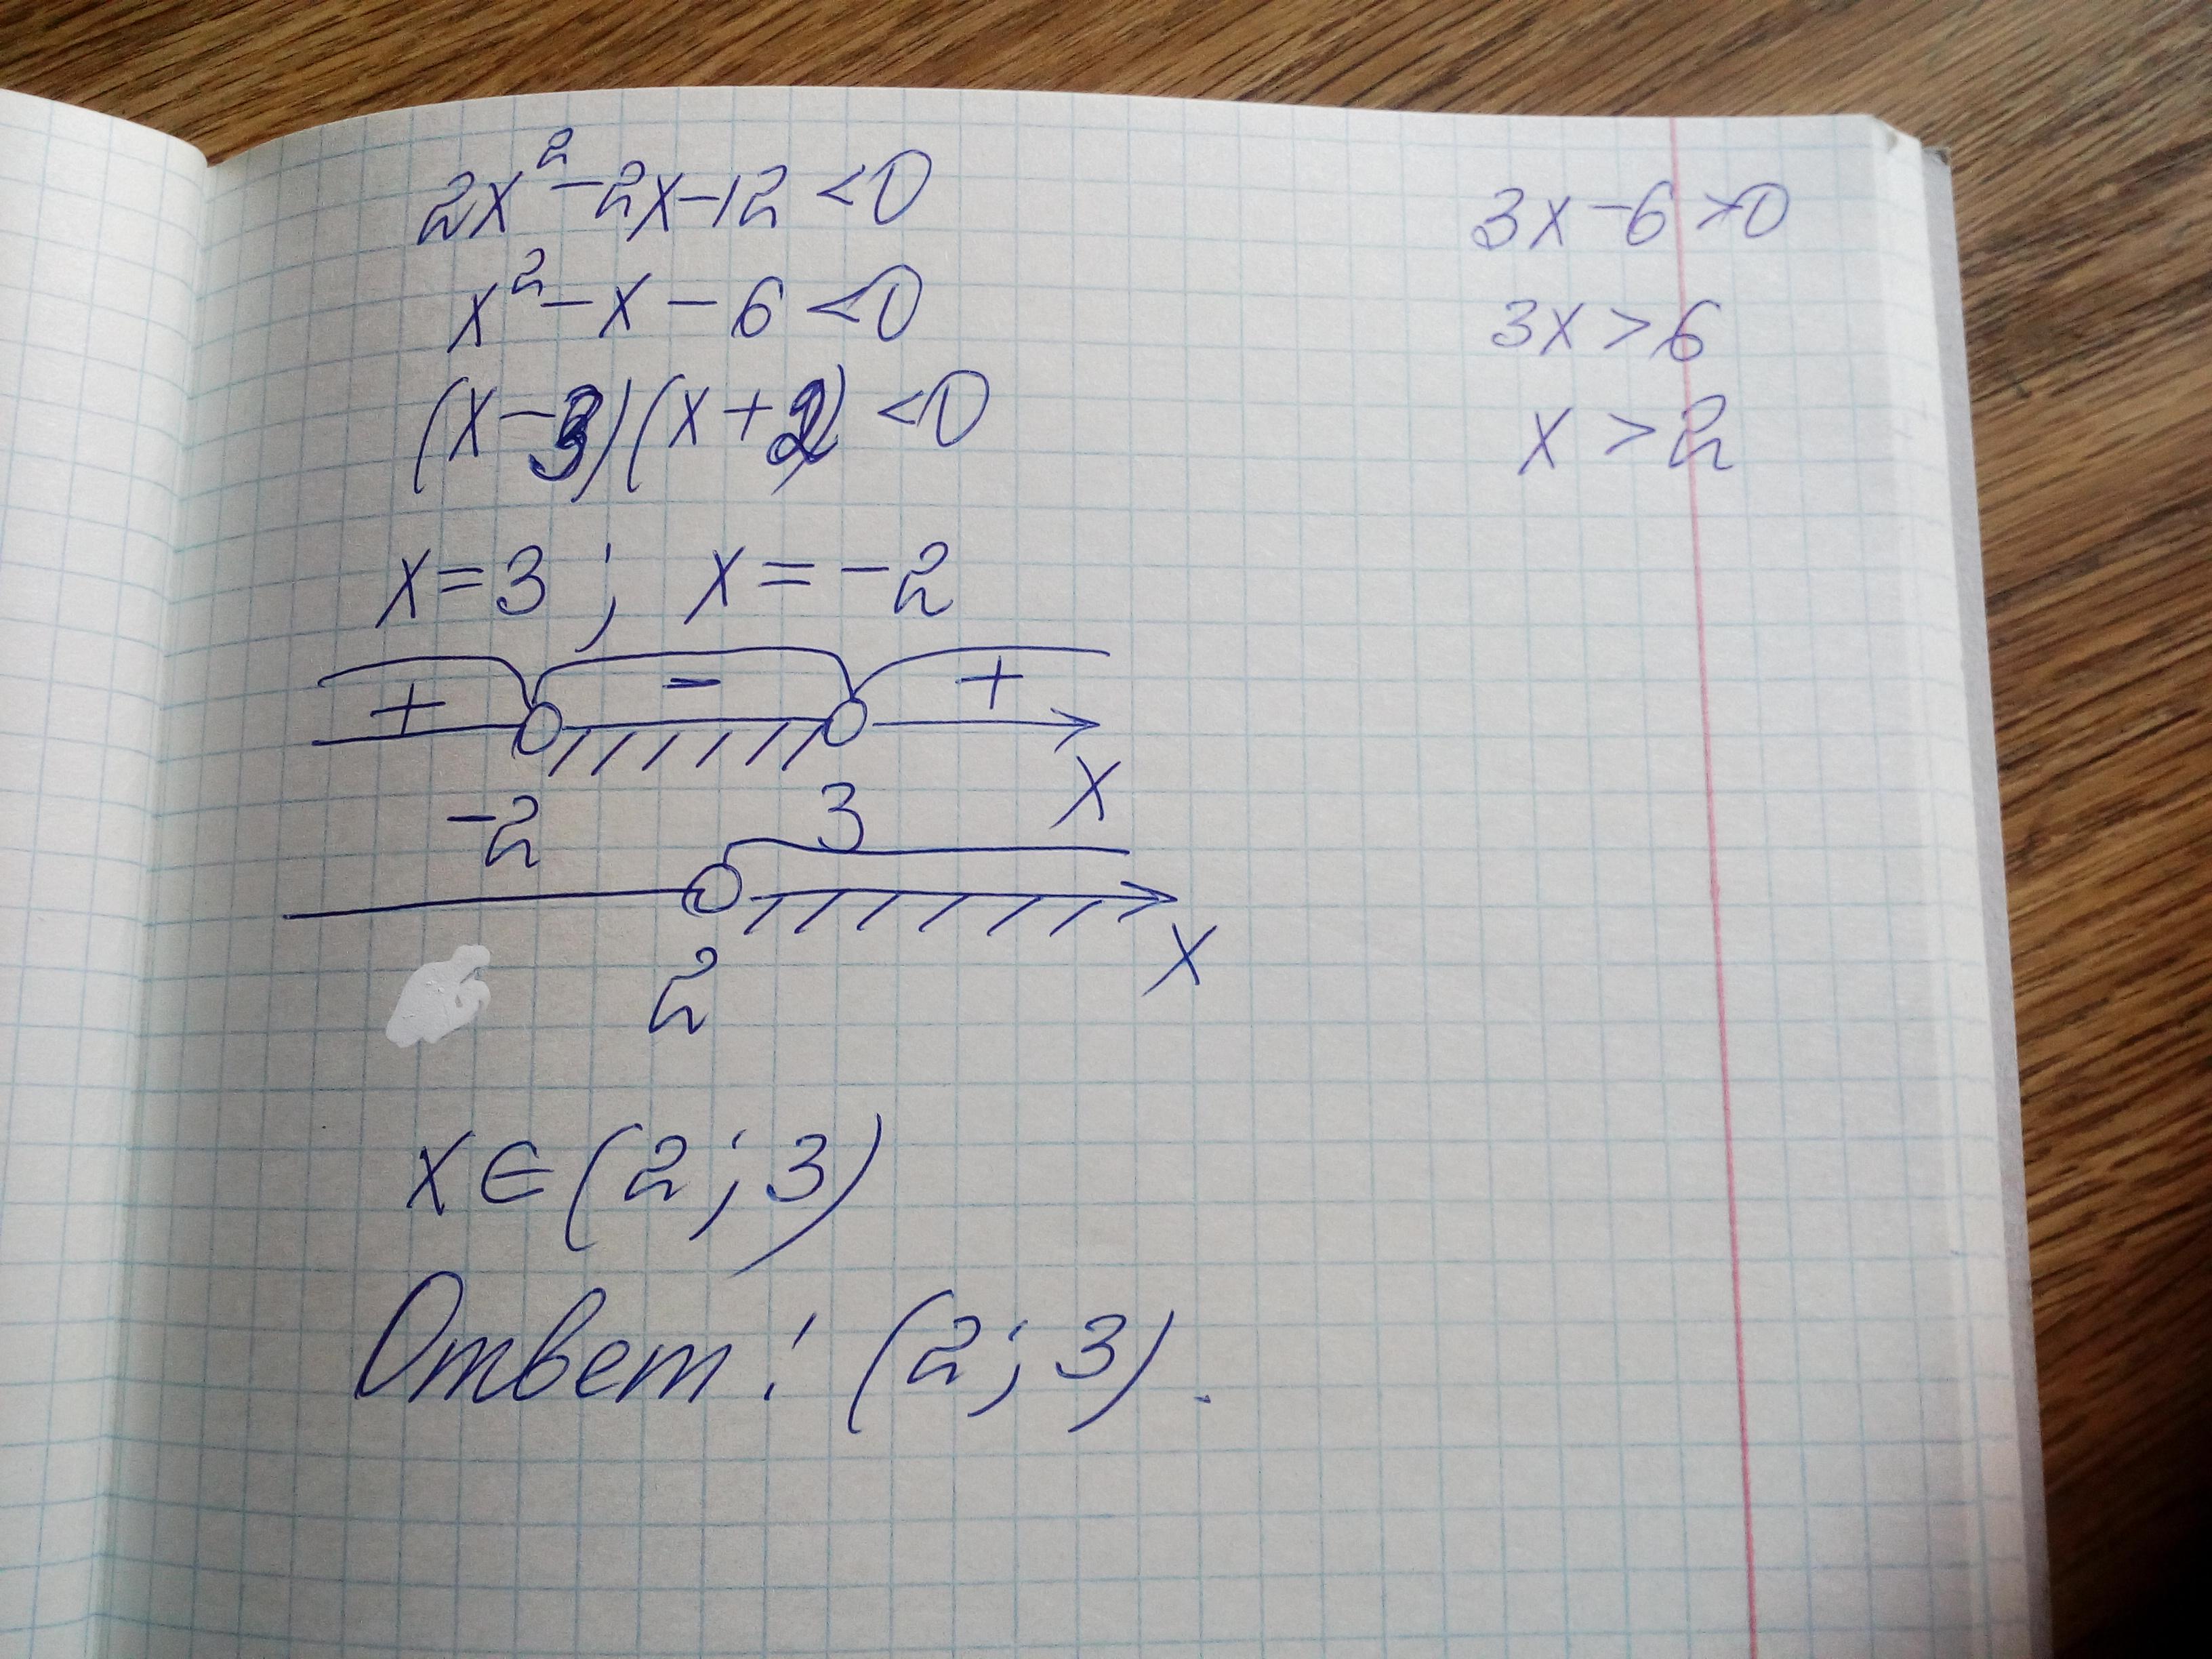 2x²-2x-12<0
x²-x-6<0
(x-3)(x+2)<0
x=3; x=-2
+ - +
-2 3 x
2 x
x∈(2;3)
Ответ: (2;3).
3x-6>0
3x>6
x>2